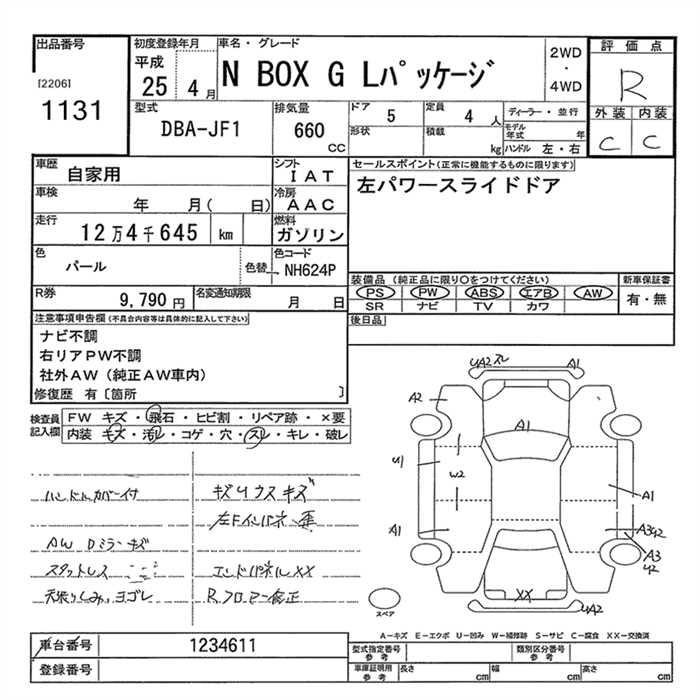 出品番号
[2206]
1131
初度登録年月
平成
25 4月
車名・グレード
N BOX G Lパッケージ
2WD
・
4WD
評価点
R
外装 内装
C C
型式
DBA-JF1
排気量
660
CC
ドア 5
定員 4 人
ディーラー・並行
形状
積載 kg
モデル年式 年
ハンドル 左・右
車歴
自家用
シフト
IAT
車検
年 月( 日)
冷房
AAC
走行
12万4千645 km
燃料
ガソリン
色
パール
色替
色コード
NH624P
R券
9,790 円
名変通知期限
月 日
セールスポイント(正常に機能するものに限ります)
左パワースライドドア
装備品 (純正品に限り〇をつけてください)
PS PW ABS エアB AW
SR ナビ TV カワ
新車保証書
有・無
後日品
注意事項申告欄(不具合内容等は具体的に記入して下さい)
ナビ不調
右リアPW不調
社外AW(純正AW車内)
修復歴 有〔箇所 〕
検査員
記入欄
FW キズ・飛石・ヒビ割・リペア跡・×要
内装 キズ・汚レ・コゲ・穴・スレ・キレ・破レ
ハンドルカバー付
キズ.ウスキズ
左Fインパネ
AW Dミラーキズ
スタットレス
エンドパネルXX
天張りしみ、ヨゴレ
R.フロアー修正
UA2 スレ A1
A2
A1
U1
W2
A1
A1
A3
42
A3
42
XX
UA2
スペア
A-キズ E-エクボ U-凹み W-補修跡 S-サビ C-腐食 XX-交換済
車台番号 1234611
登録番号
型式指定番号
参考
類別区分番号
参考
車庫証明用
参考
長さ cm
幅 cm
高さ cm